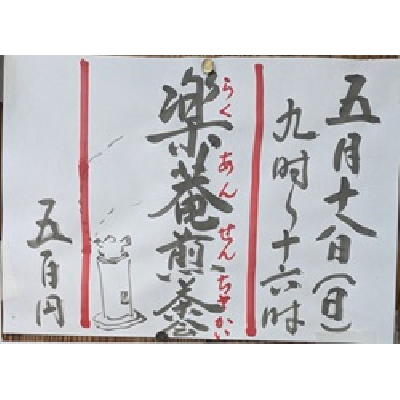 五月十八日(日)
九时〜十六时
らくあんせんちゃかい
楽菴煎茶会
五百円